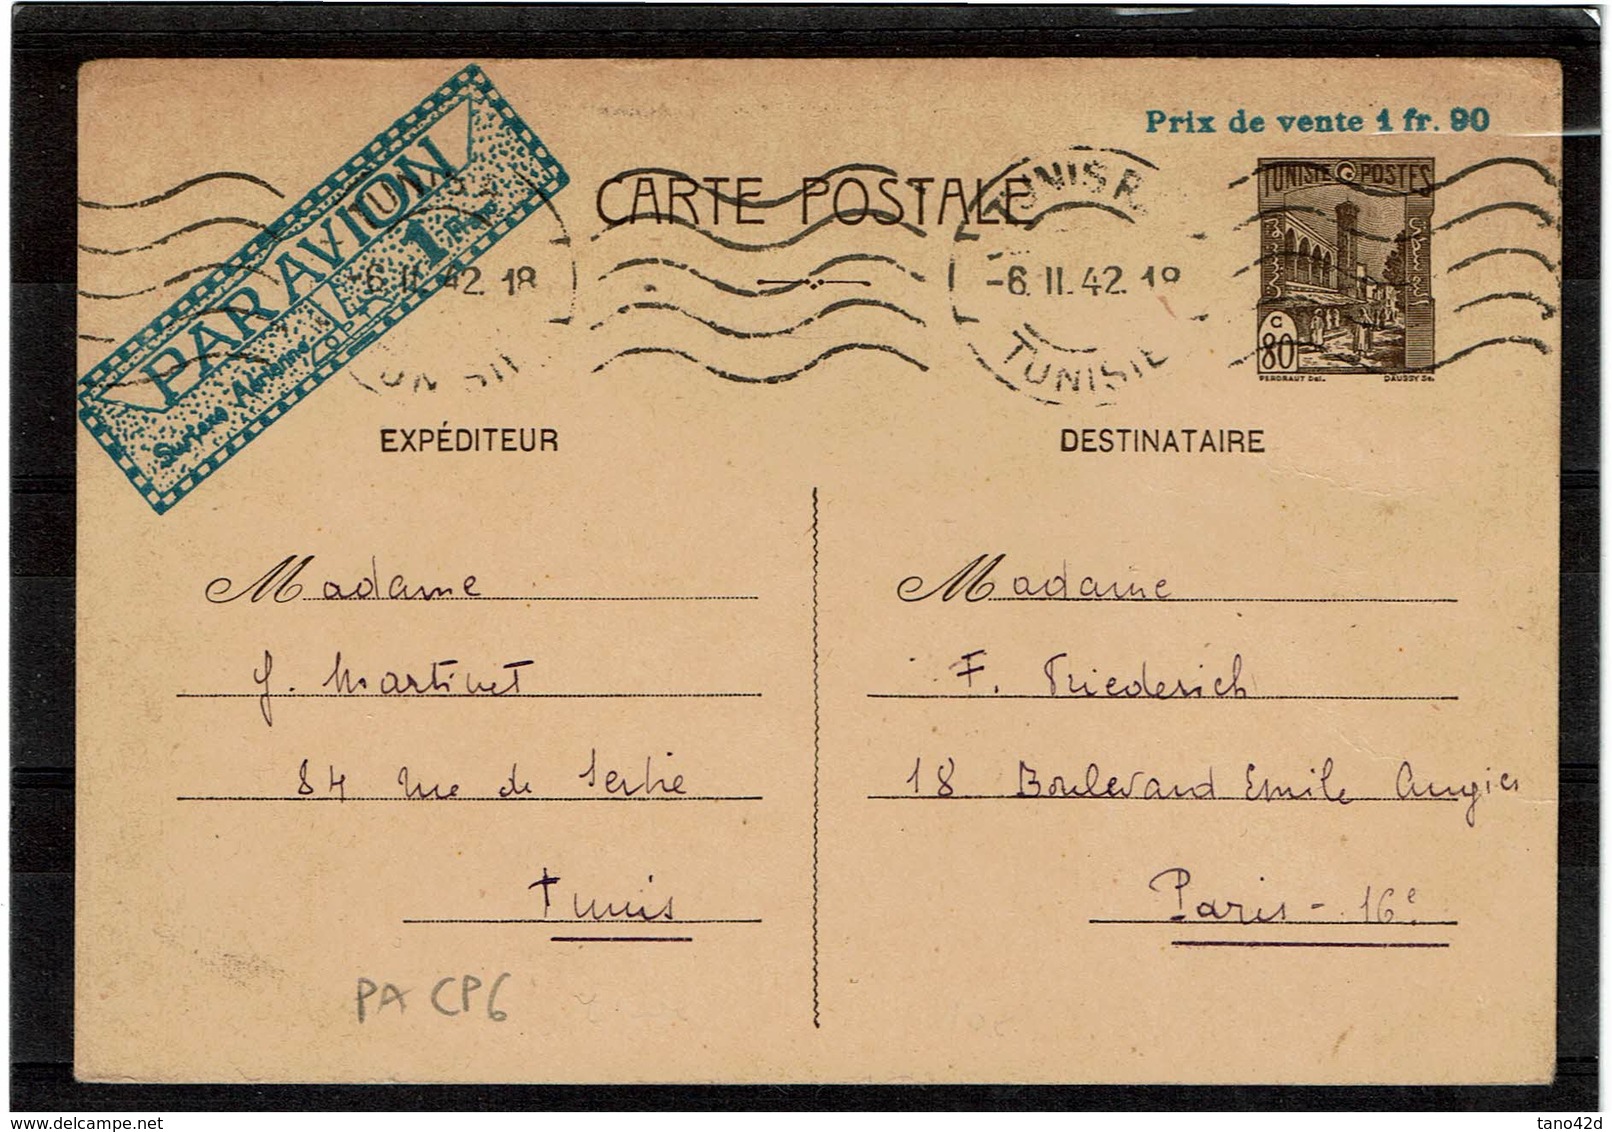 Prix de vente 1 fr. 90
PAR AVION
Surtaxe Aérienne 1 Franc
CARTE POSTALE
TUNIS R.
-6. II. 42. 18
TUNISIE
-6 II 42. 18
TUNISIE POSTES
C
80
DAUSSY Sc.
EXPÉDITEUR
DESTINATAIRE
Madame
J. Martinet
84 rue de Serbie
Tunis
Madame
F. Friederich
18 Boulevard Emile Augier
Paris - 16e
PA CP6
delcampe.net
tano42d